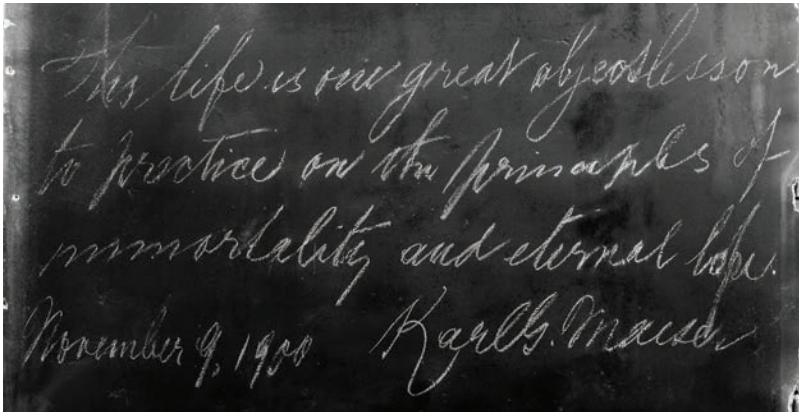 This life is one great object lesson
to practice on the principles of
immortality and eternal life.
November 9, 1900 Karl G. Maeser